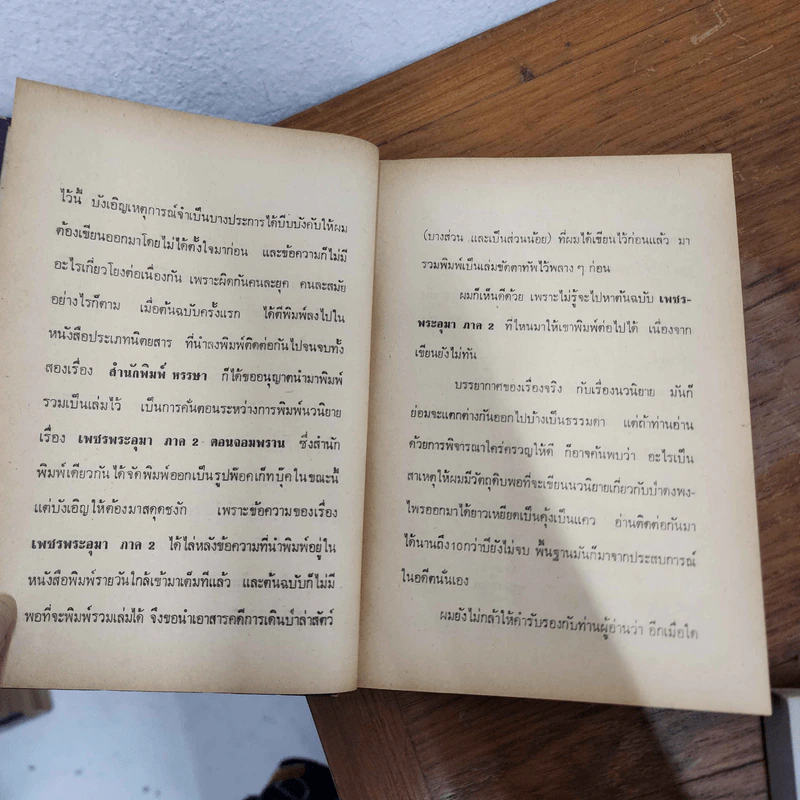 ไว้นี้ บังเอิญเหตุการณ์จำเป็นบางประการได้บีบบังคับให้ผม
ต้องเขียนออกมาโดยไม่ได้ตั้งใจมาก่อน และข้อความก็ไม่มี
อะไรเกี่ยวโยงต่อเนื่องกัน เพราะผิดกันคนละยุค คนละสมัย
อย่างไรก็ตาม เมื่อต้นฉบับครั้งแรก ได้ตีพิมพ์ลงไปใน
หนังสือประเภทนิตยสาร ที่นำลงพิมพ์ติดต่อกันไปจนจบทั้ง
สองเรื่อง สำนักพิมพ์ หรรษา ก็ได้ขออนุญาตนำมาพิมพ์
รวมเป็นเล่มไว้ เป็นการคั่นตอนระหว่างการพิมพ์นวนิยาย
เรื่อง เพชรพระอุมา ภาค 2 ตอนจอมพราน ซึ่งสำนัก
พิมพ์เดียวกัน ได้จัดพิมพ์ออกเป็นรูปพ๊อคเก็ทบุ๊คในขณะนี้
แต่บังเอิญให้ต้องมาสดุดชงัก เพราะข้อความของเรื่อง
เพชรพระอุมา ภาค 2 ได้ไล่หลังข้อความที่นำพิมพ์อยู่ใน
หนังสือพิมพ์รายวันใกล้เข้ามาเต็มทีแล้ว และต้นฉบับก็ไม่มี
พอที่จะพิมพ์รวมเล่มได้ จึงขอนำเอาสารคดีการเดินป่าล่าสัตว์
(บางส่วน และเป็นส่วนน้อย) ที่ผมได้เขียนไว้ก่อนแล้ว มา
รวมพิมพ์เป็นเล่มขัดตาทัพไว้พลาง ๆ ก่อน
ผมก็เห็นดีด้วย เพราะไม่รู้จะไปหาต้นฉบับ เพชร-
พระอุมา ภาค 2 ที่ไหนมาให้เขาพิมพ์ต่อไปได้ เนื่องจาก
เขียนยังไม่ทัน
บรรยากาศของเรื่องจริง กับเรื่องนวนิยาย มันก็
ย่อมจะแตกต่างกันออกไปบ้างเป็นธรรมดา แต่ถ้าท่านอ่าน
ด้วยการพิจารณาใคร่ครวญให้ดี ก็อาจค้นพบว่า อะไรเป็น
สาเหตุให้ผมมีวัตถุดิบพอที่จะเขียนนวนิยายเกี่ยวกับป่าดงพง-
ไพรออกมาได้ยาวเหยียดเป็นคุ้งเป็นแคว อ่านติดต่อกันมา
ได้นานถึง 10 กว่าปียังไม่จบ พื้นฐานมันก็มาจากประสบการณ์
ในอดีตนั่นเอง
ผมยังไม่กล้าให้คำรับรองกับท่านผู้อ่านว่า อีกเมื่อใด